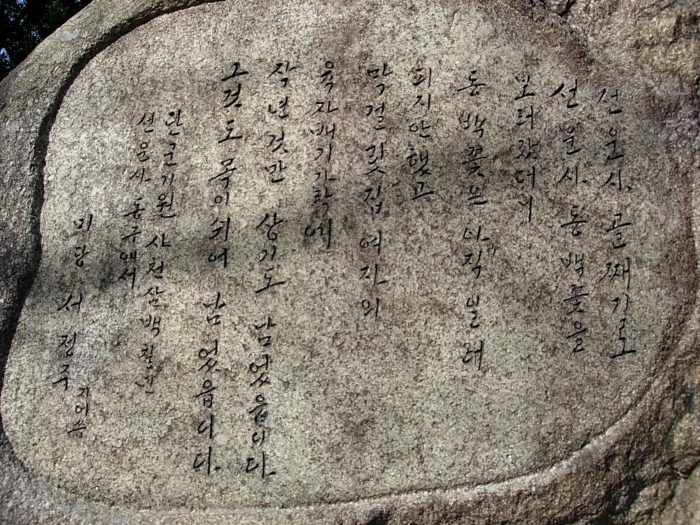 선운사 골째기로
선운사 동백꽃을
보러 갔더니
동백꽃은 아직 일러
피지 안했고
막걸릿집 여자의
육자배기 가락에
작년것만 상기도 남었읍니다.
그것도 목이 쉬어 남었읍니다.
단군기원 사천삼백칠년
선운사 동구에서
미당 서정주 지어씀